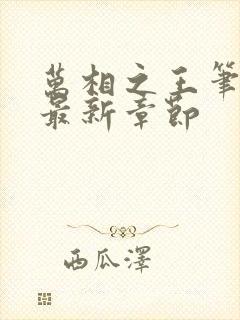 萬相之王筆
最新章節
西瓜澤